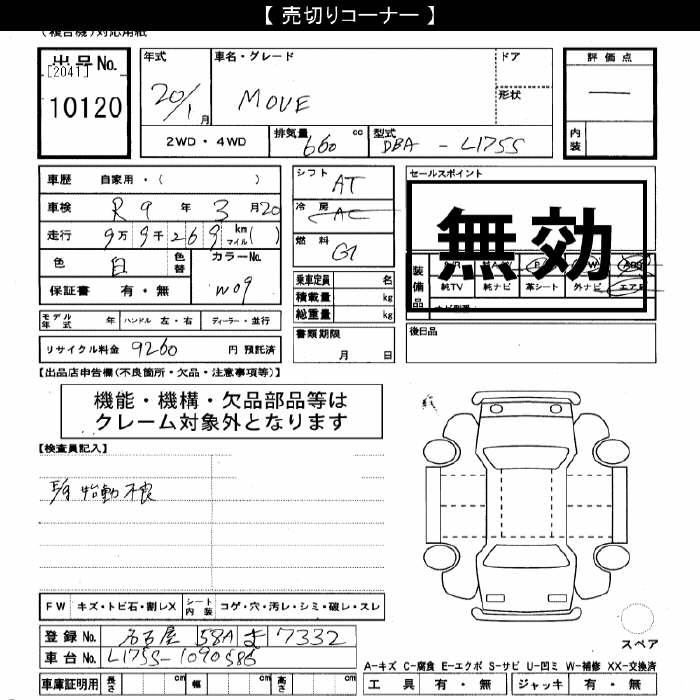 【 売切りコーナー 】
(複合機)対応用紙
出品No.
[2041]
10120
年式
20/1月
車名・グレード
MOVE
ドア
形状
評価点
内装
2WD・4WD
排気量 660 cc
型式 DBA - L175S
車歴 自家用・( )
車検 R9年3月20
走行 9万9千269 km マイル( )
色 白 色替
カラーNo. W09
保証書 有・無
シフト AT
冷房 AC
燃料 G
乗車定員 名
積載量 kg
総重量 kg
セールスポイント
無効
装備品
純TV 純ナビ 革シート 外ナビ エアB
モデル年式 年 ハンドル 左・右 ディーラー・並行
書類期限 月 日
後日品
リサイクル料金 9260 円 預託済
【出品店申告欄(不良箇所・欠品・注意事項等)】
機能・機構・欠品部品等は
クレーム対象外となります
【検査員記入】
始動不良
FW キズ・トビ石・割レX シート内装 コゲ・穴・汚レ・シミ・破レ・スレ
登録No. 名古屋 58A ま 7332
車台No. L175S-1090586
スペア
A-キズ C-腐食 E-エクボ S-サビ U-凹ミ W-補修 XX-交換済
車庫証明用 長さ cm 幅 cm 高さ cm
工具 有・無 ジャッキ 有・無